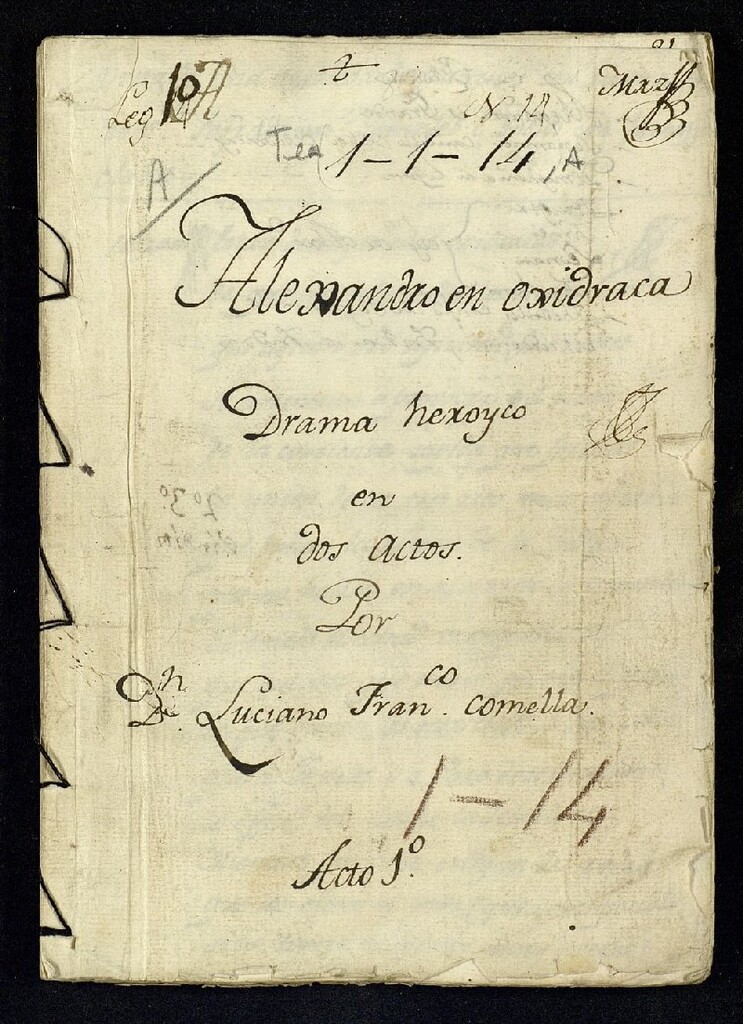 Leg 1º
N 14
Tea 1-1-14, A
A
Alexandro en oxidraca
Drama heroyco
en
dos actos.
Por
Dn. Luciano Franco. comella.
1-14
Acto 1º